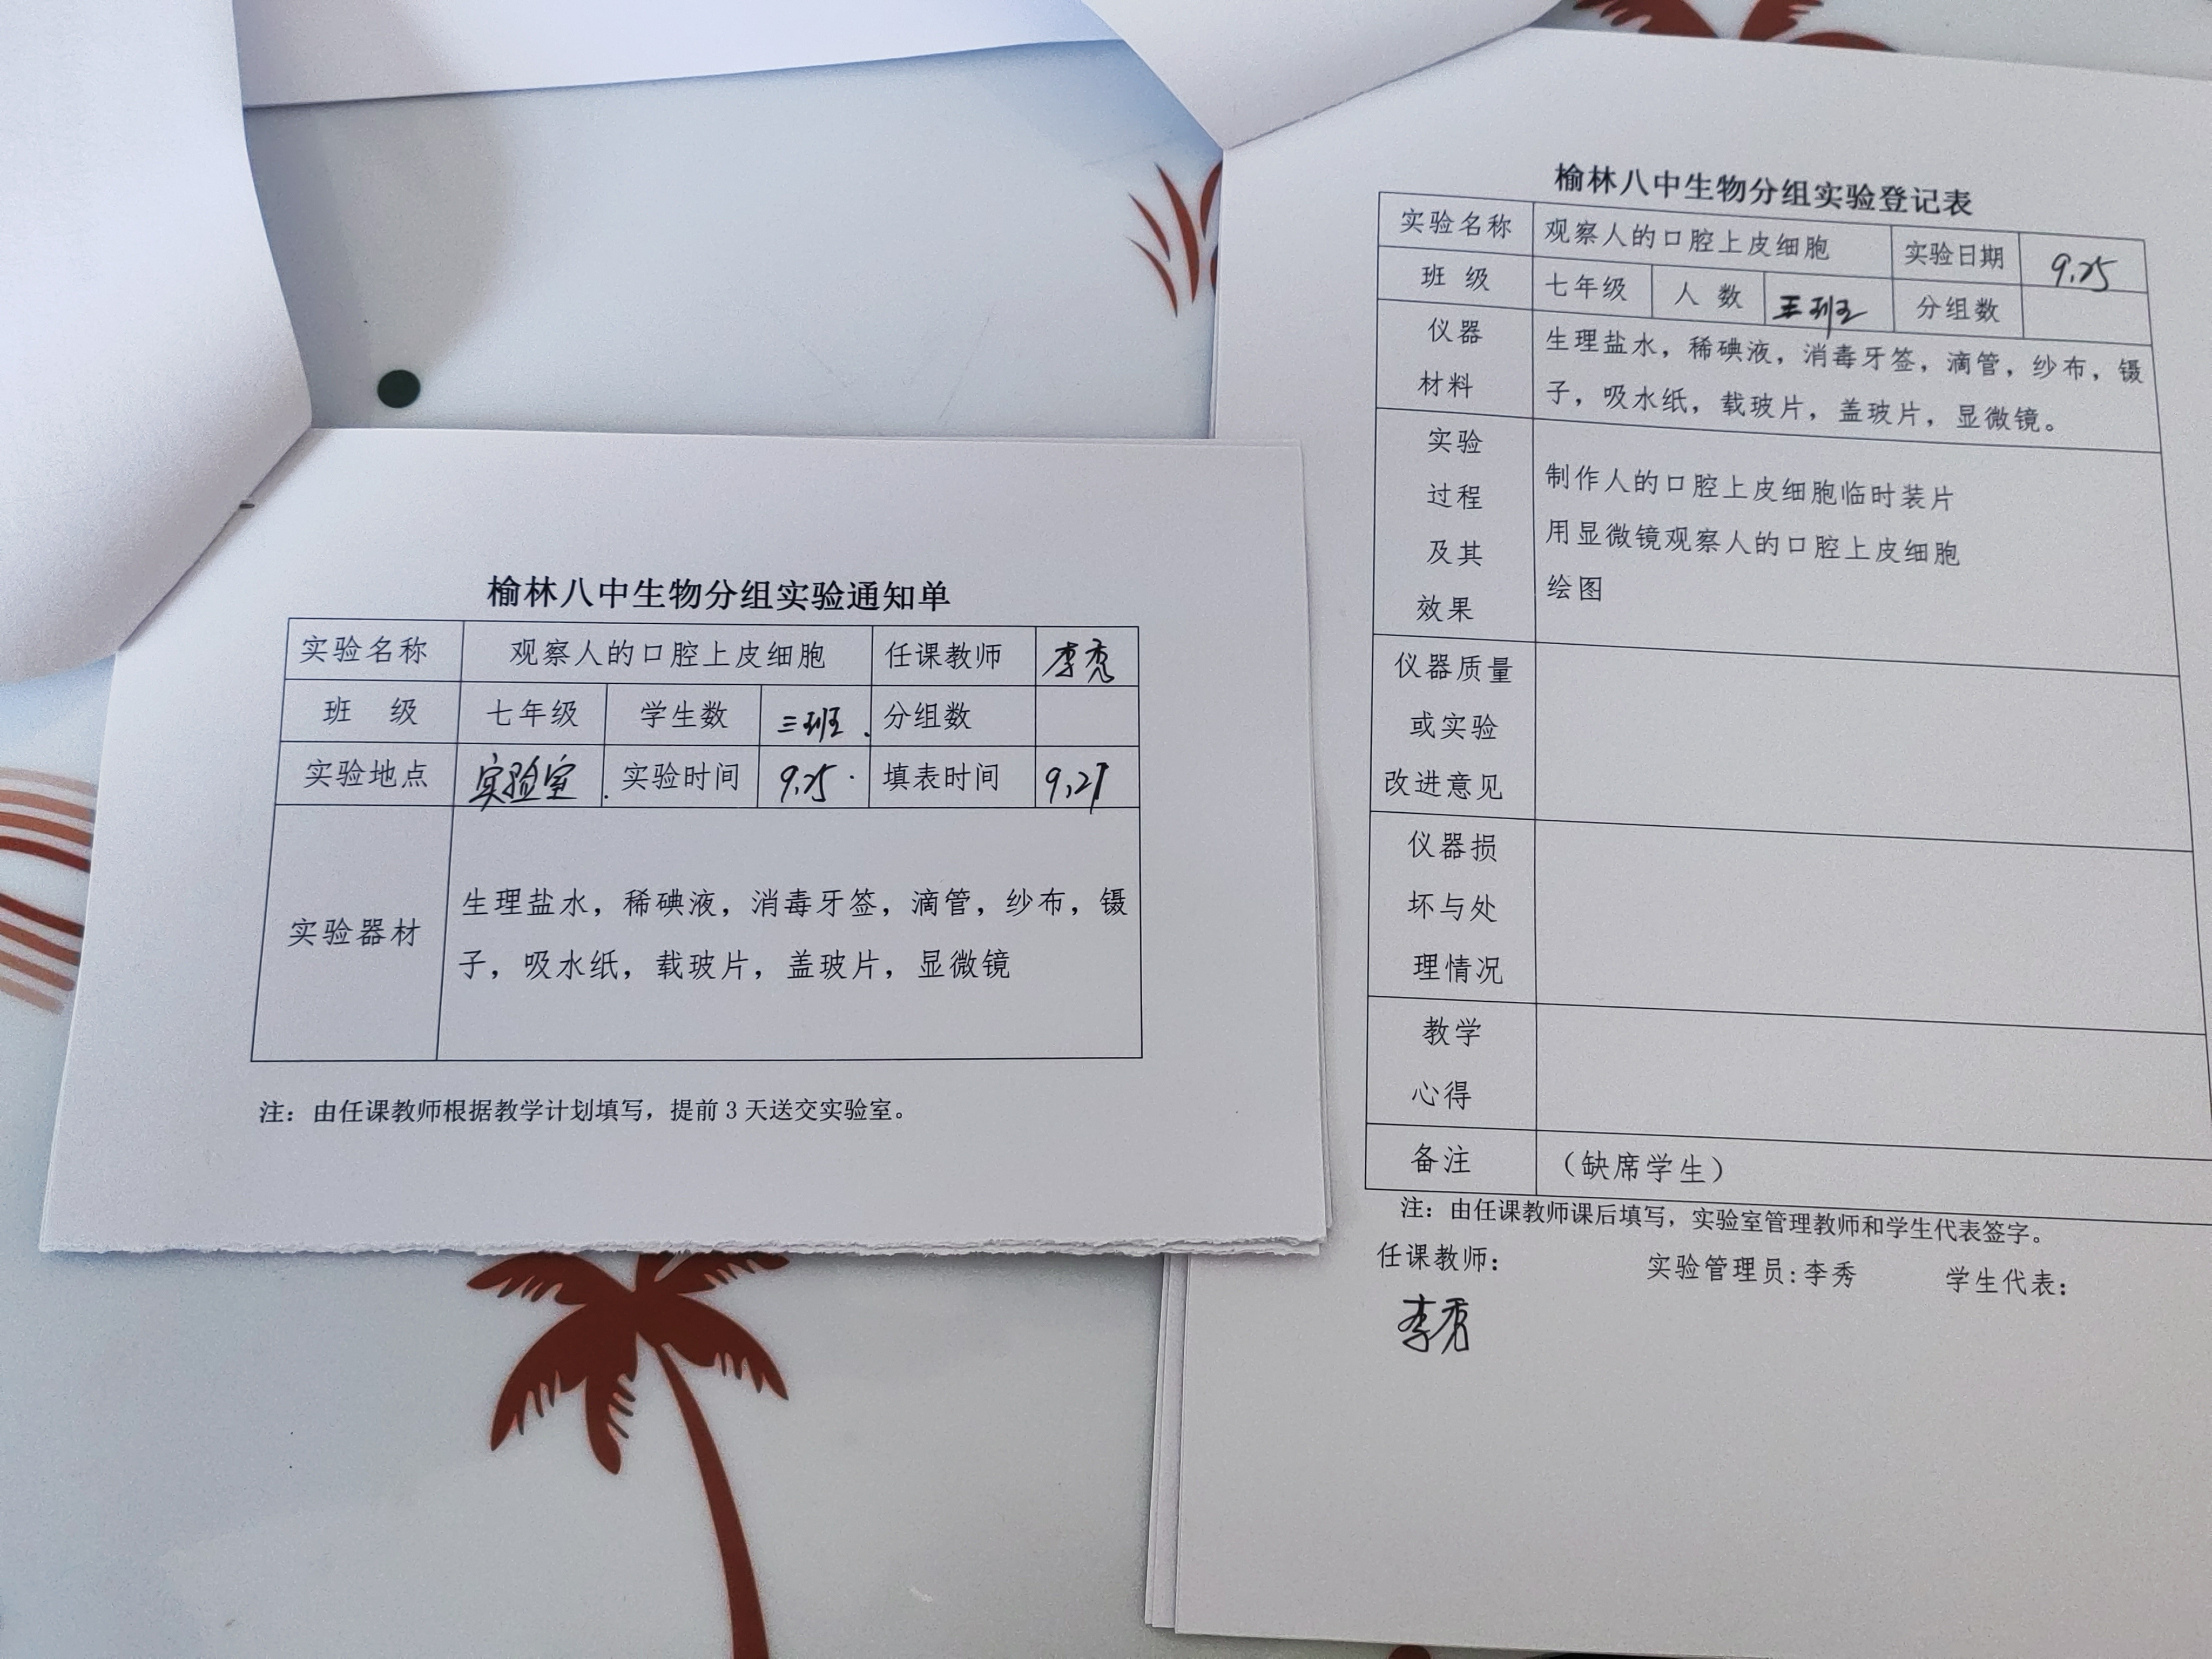 榆林八中生物分组实验通知单
实验名称 观察人的口腔上皮细胞 任课教师 李秀
班 级 七年级 学生数 三班. 分组数
实验地点 实验室. 实验时间 9.25. 填表时间 9.21
实验器材
生理盐水，稀碘液，消毒牙签，滴管，纱布，镊
子，吸水纸，载玻片，盖玻片，显微镜
注：由任课教师根据教学计划填写，提前3天送交实验室。
榆林八中生物分组实验登记表
实验名称 观察人的口腔上皮细胞 实验日期 9.25
班 级 七年级 人 数 三班 分组数
仪器
材料
生理盐水，稀碘液，消毒牙签，滴管，纱布，镊
子，吸水纸，载玻片，盖玻片，显微镜。
实验
过程
及其
效果
制作人的口腔上皮细胞临时装片
用显微镜观察人的口腔上皮细胞
绘图
仪器质量
或实验
改进意见
仪器损
坏与处
理情况
教学
心得
备注 （缺席学生）
注：由任课教师课后填写，实验室管理教师和学生代表签字。
任课教师： 实验管理员:李秀 学生代表：
李秀